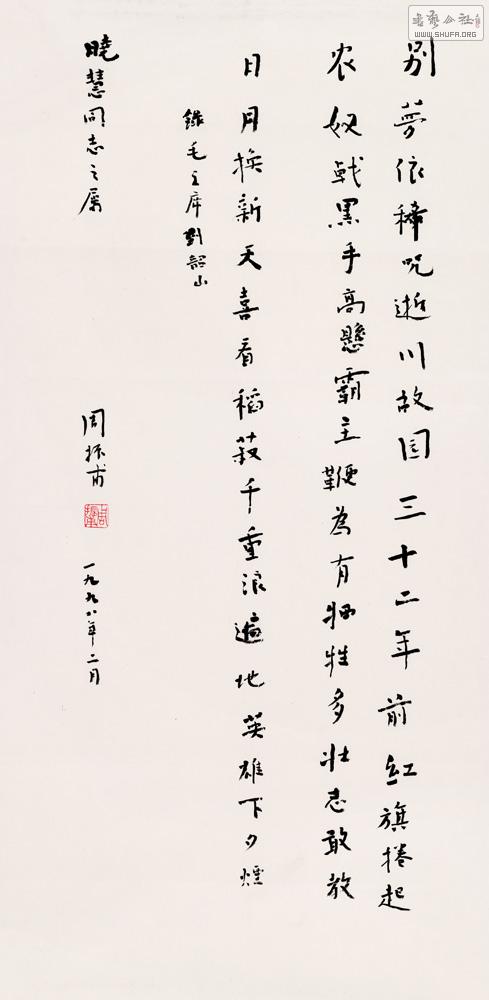 别梦依稀咒逝川故园三十二年前红旗捲起
农奴戟黑手高懸霸主鞭為有牺牲多壮志敢教
日月换新天喜看稻菽千重浪遍地英雄下夕煙
錄毛主席到韶山
曉慧同志之属
周振甫
一九九八年二月
WWW.SHUFA.ORG